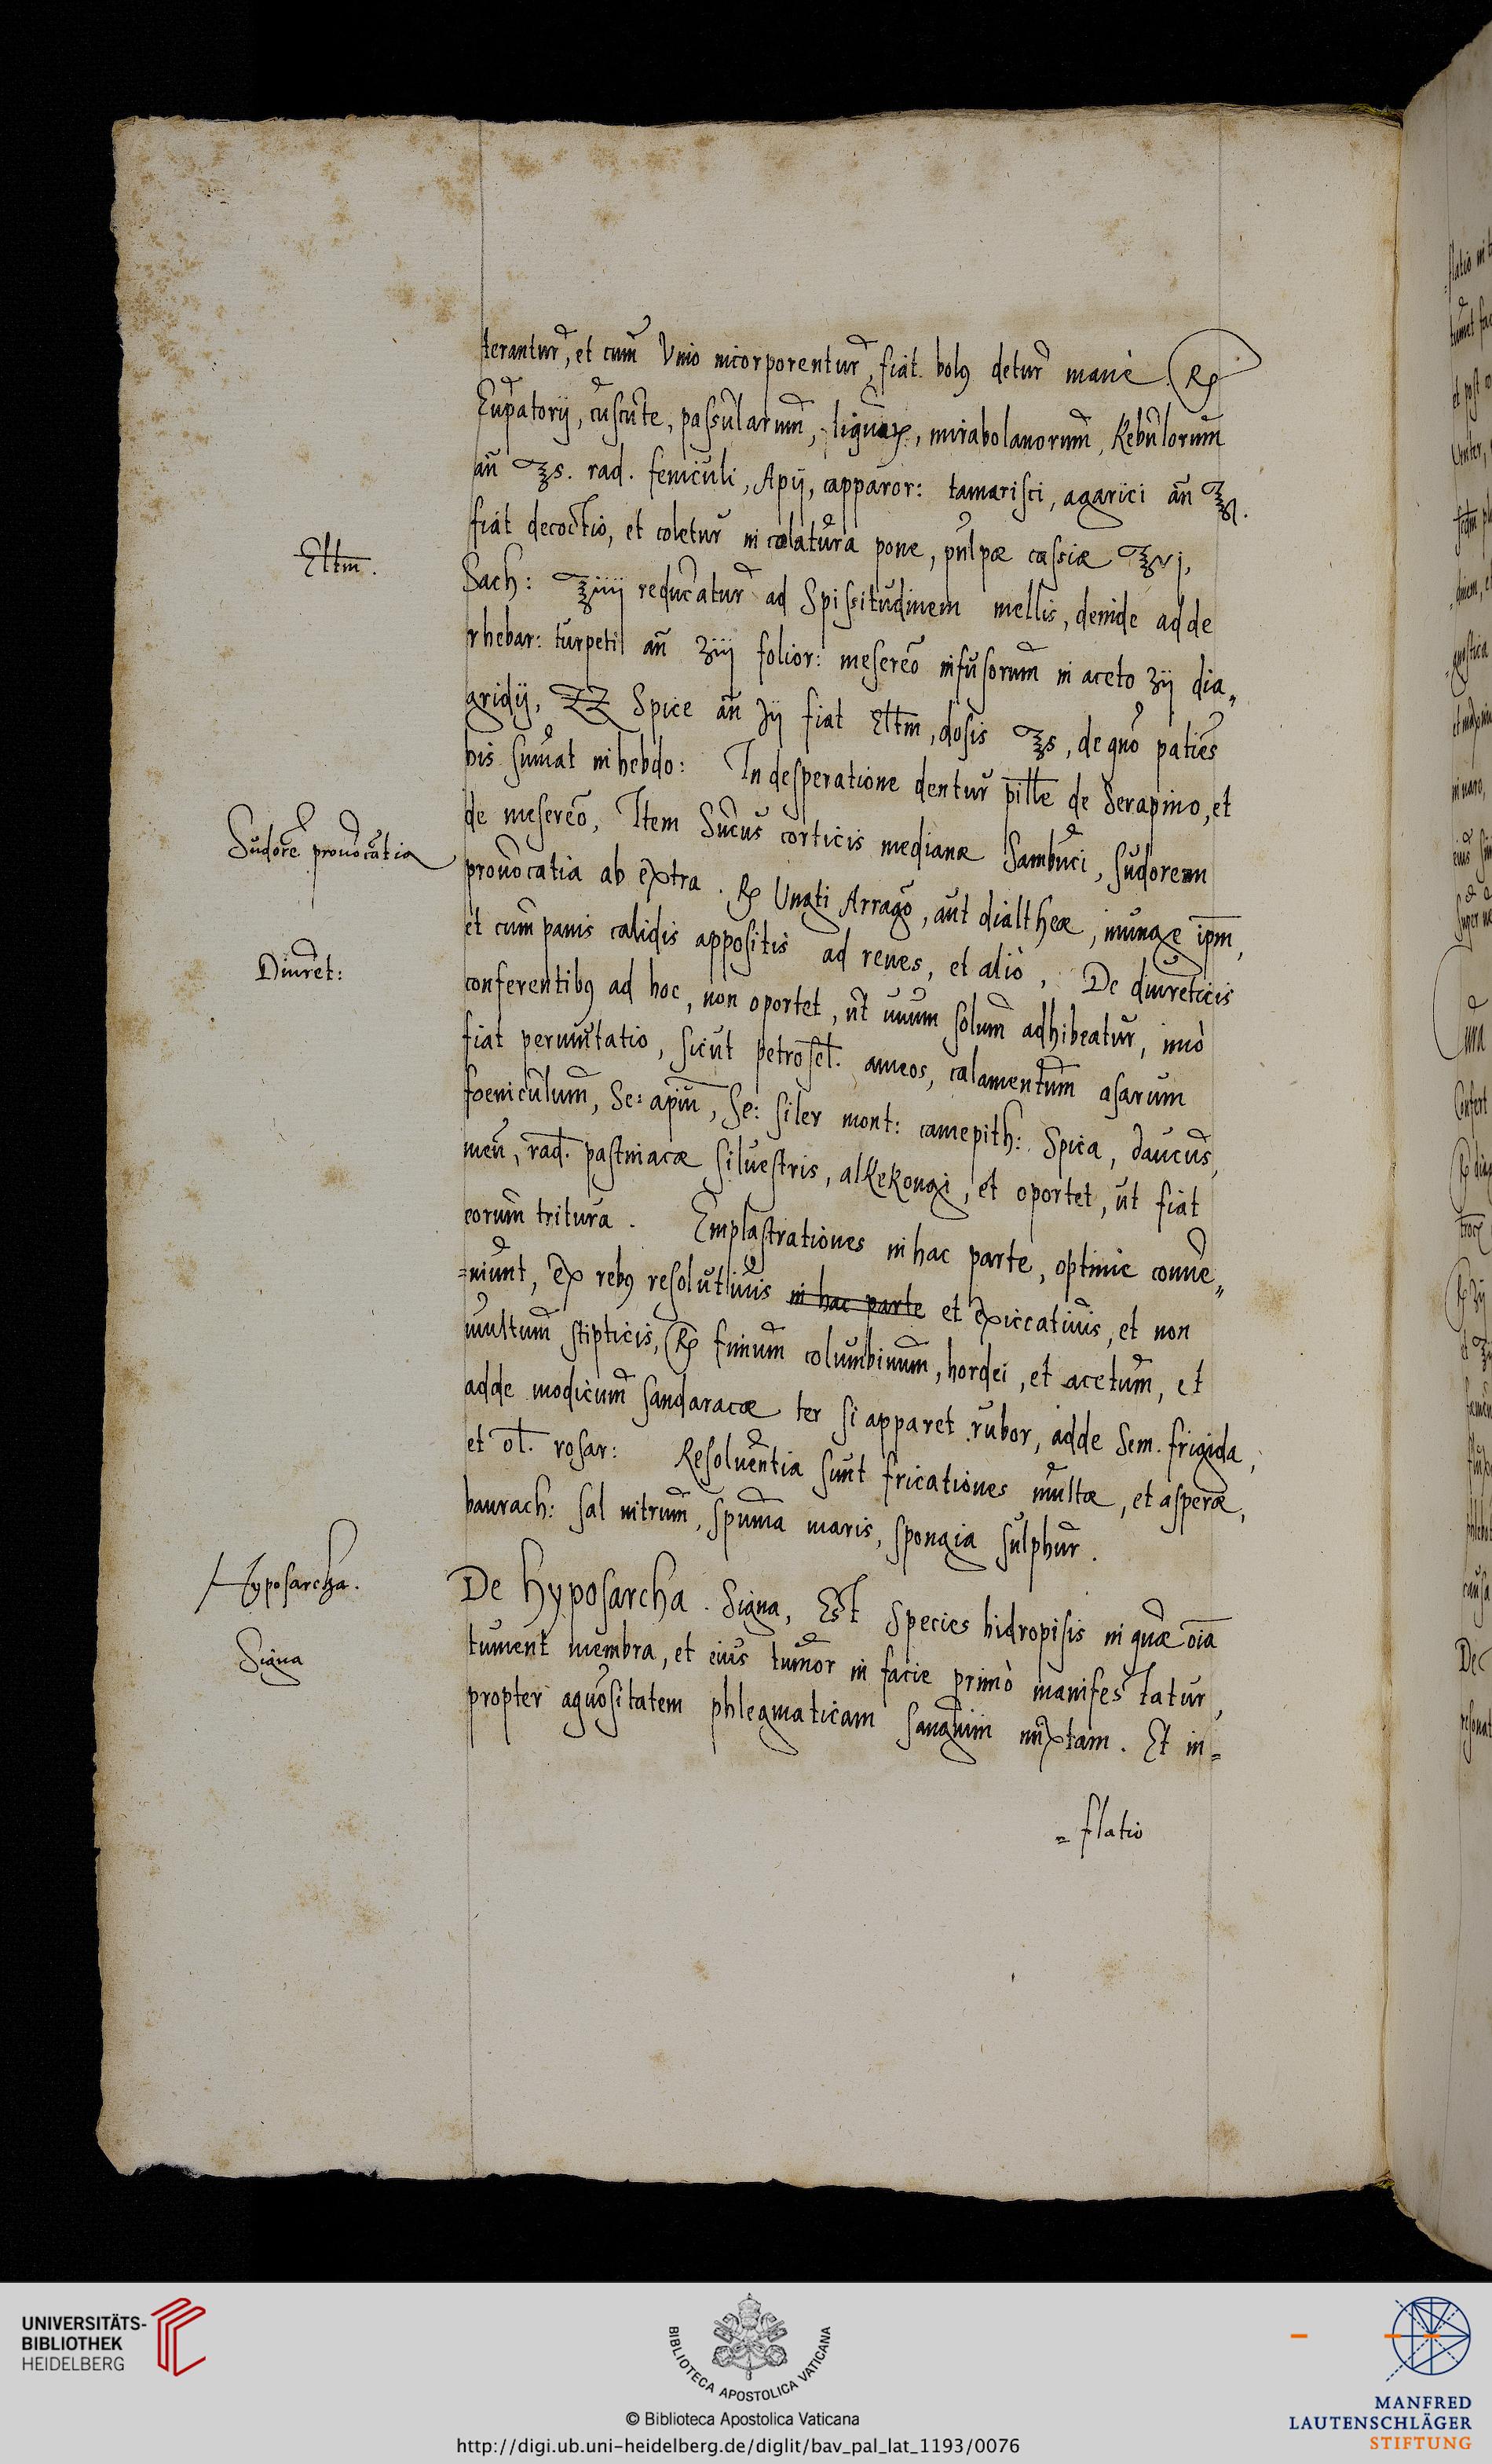 terantur, et cum Vino incorporentur, fiat bolus detur manè. ℞
Eupatorij, cuscute, passularum, mirabolanorum, Kebulorum
añ ℥s. rad. feniculi, Apij, capparor: tamarisci, agarici añ
fiat decoctio, et coletur in colatura pone, pulpæ cassiæ ℥vj,
Eltm.
Sach: ℥iiij reducatur ad Spissitudinem mellis, deinde adde
rhebar: turpeti añ ʒiij folior: mesereõ infusorum in aceto ʒij dia„
gridij, ZZ Spice añ ℈ij fiat Eltm, dosis ℥s, de quo patiẽs
bis sumat in hebdo: In desperatione dentur pille de Serapino, et
de mesereõ, Item Sucus corticis medianæ Sambuci, Sudorem
Sudorẽ prouocãtia
prouocãtia ab extra. ℞ Ungti Arragõ, aut dialtheæ, inunge ipm,
et cum panis calidis appositis ad renes, et aliò, De diureticis
Diuret:
conferentibus ad hoc, non oportet, ut unum solum adhibeatur, imò
fiat permutatio, sicut petrosel. ameos, calamentum asarum
foeniculum, Se: apium, Se: siler mont: camepith: Spica, daucus,
meu, rad. pastinacæ siluestris, alkekongi, et oportet, ut fiat
eorum tritura. Emplastrationes in hac parte, optimè conue„
=niunt, ex rebus resolutiuis in hac parte et exiccatiuis, et non
multum stipticis, ℞ fimum columbinum, hordei, et acetum, et
adde modicum sandaracæ ter si apparet rubor, adde Sem. frigida,
et ol. rosar: Resoluentia sunt fricationes multæ, et asperæ,
baurach: sal nitrum, spuma maris, spongia sulphur.
Hyposarcha.
De Hyposarcha. Signa, Est Species hidropisis in quæ oĩa
Signa
tument membra, et eius tumor in facie primò manifestatur,
propter aquositatem phlegmaticam sanguini mixtam. Et in=
=flatio
UNIVERSITÄTS-
BIBLIOTHEK
HEIDELBERG
BIBLIOTECA APOSTOLICA VATICANA
© Biblioteca Apostolica Vaticana
http://digi.ub.uni-heidelberg.de/diglit/bav_pal_lat_1193/0076
MANFRED
LAUTENSCHLÄGER
STIFTUNG